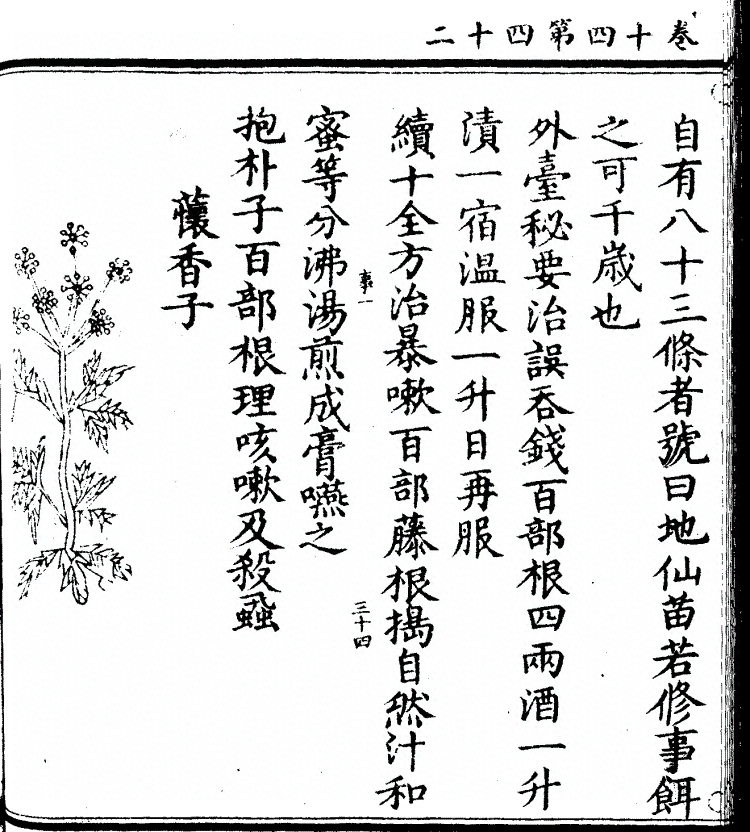 卷十四第四十二
自有八十三條者號曰地仙苗若修事餌
之可千歲也
外臺秘要治誤吞錢百部根四兩酒一升
漬一宿溫服一升日再服
續十全方治暴嗽百部藤根搗自然汁和
事一
三十四
蜜等分沸湯煎成膏嚥之
抱朴子百部根理咳嗽及殺蝨
蘹香子